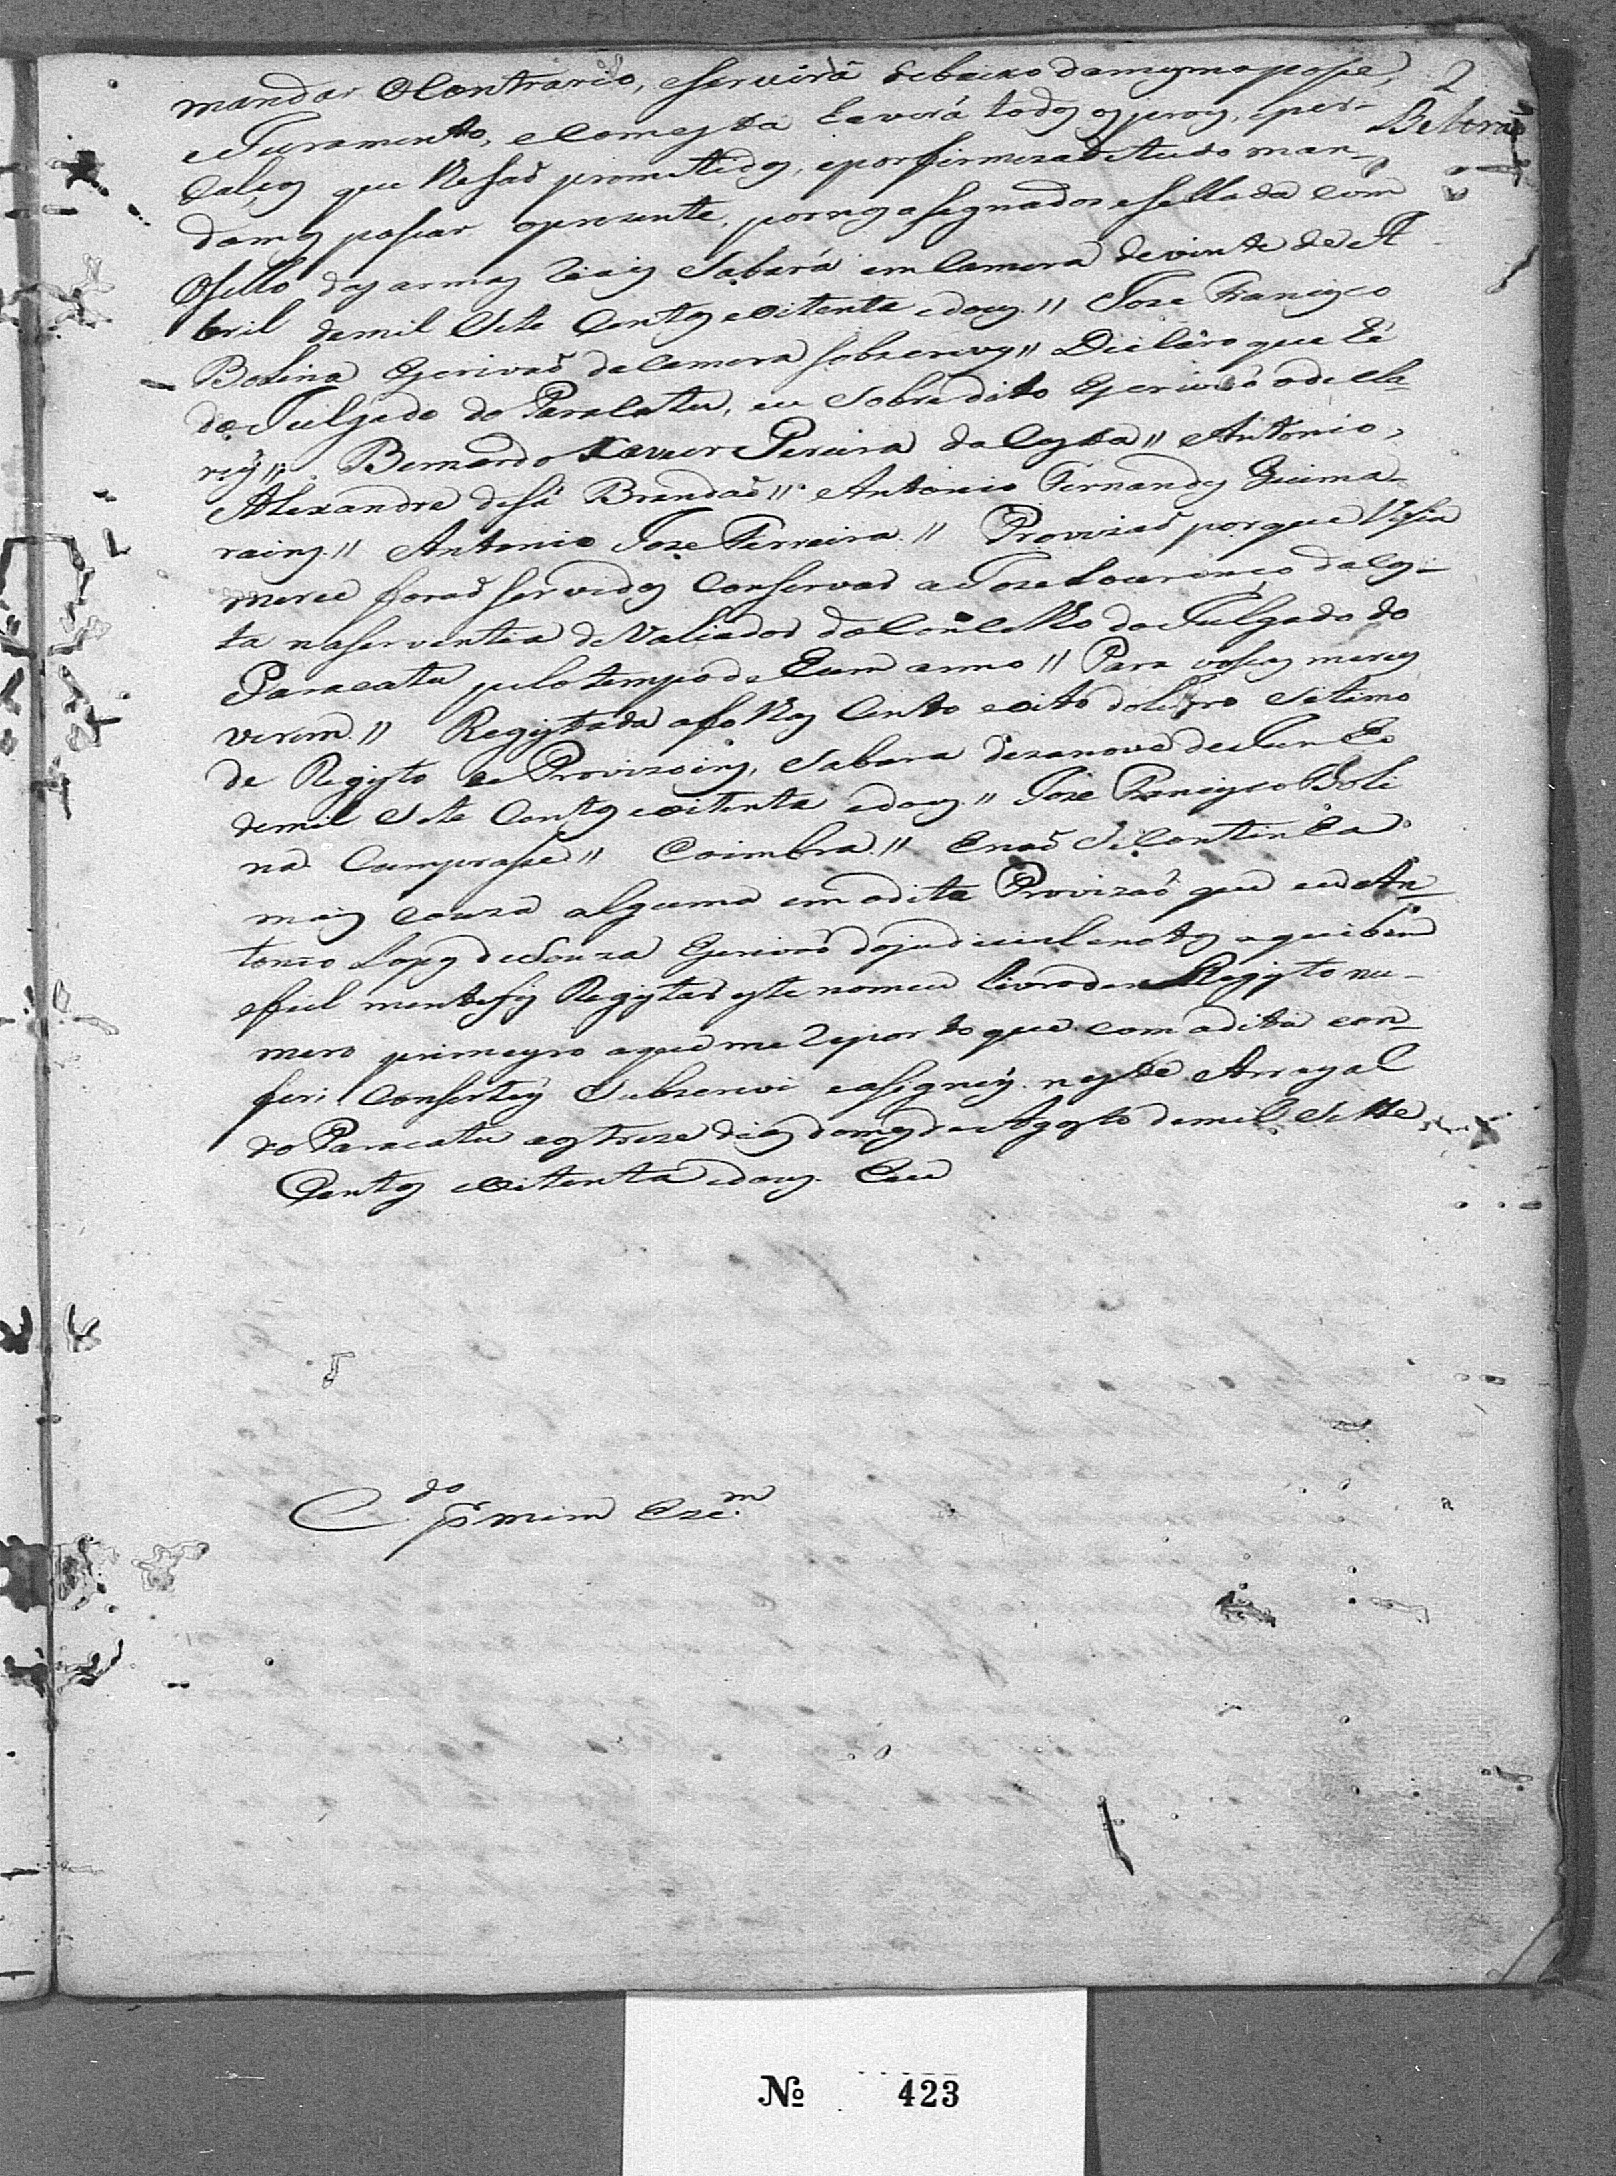 2
Beltraõ
mandar o Contrario, eservirá debaixo damesma posse,
eJuramento, ecomesta haverá todos osproes, epre-
calços que lhesaõ prometidos, eporfirmeza detudo man-
damos passar aprezente, pornos asignados esellada com
OSello das armas Riais Sabará em Camera devinte de A
bril demil Sete Centos eoitenta edous // Joze Francisco
Bolina Escrivaõ daCamera sobscrevy // Declâro que hé
do Julgado do Paracatu, eu Sobredito Escrivaõ o decla
rey // Bernardo Xavier Pereira daCosta // Antonio,
Alexandre deSá Brandaõ // Antonio Fernandes Guima-
rains // Antonio Joze Ferreira // Provizaõ porque Vossas
merce foraõ servidos Conservar a Joze Lourenço daCos-
ta naserventia de Valiador doConcelho do Julgado do
Paracatu pelo tempo de hum anno // Para vossas merces
verem // Registada afolhas Cento eoito doLivro Setimo
de Registo de Provizoins, Sabara dezanove deJunho
demil Sete Centos eoitenta edous // Joze Francisco Boli
na Cumprasse // Coimbra // Enaõ Secontinha
mais couza alguma em adita Provizaõ que eu An-
tonio Lopes deSouza Escrivaõ dojudicial enotas aquibem
efiel mentefis Registar este nomeu livro de Registo nu-
mero primeyro aque me Reporto que com adita con-
feri Consertey Subscrevi easigney neste Arrayal
do Paracatu aos treze dias domes de Agosto demil Sette
Centos eoitenta edous. Eeu
C.do pr mim Esc.m
Nº 423